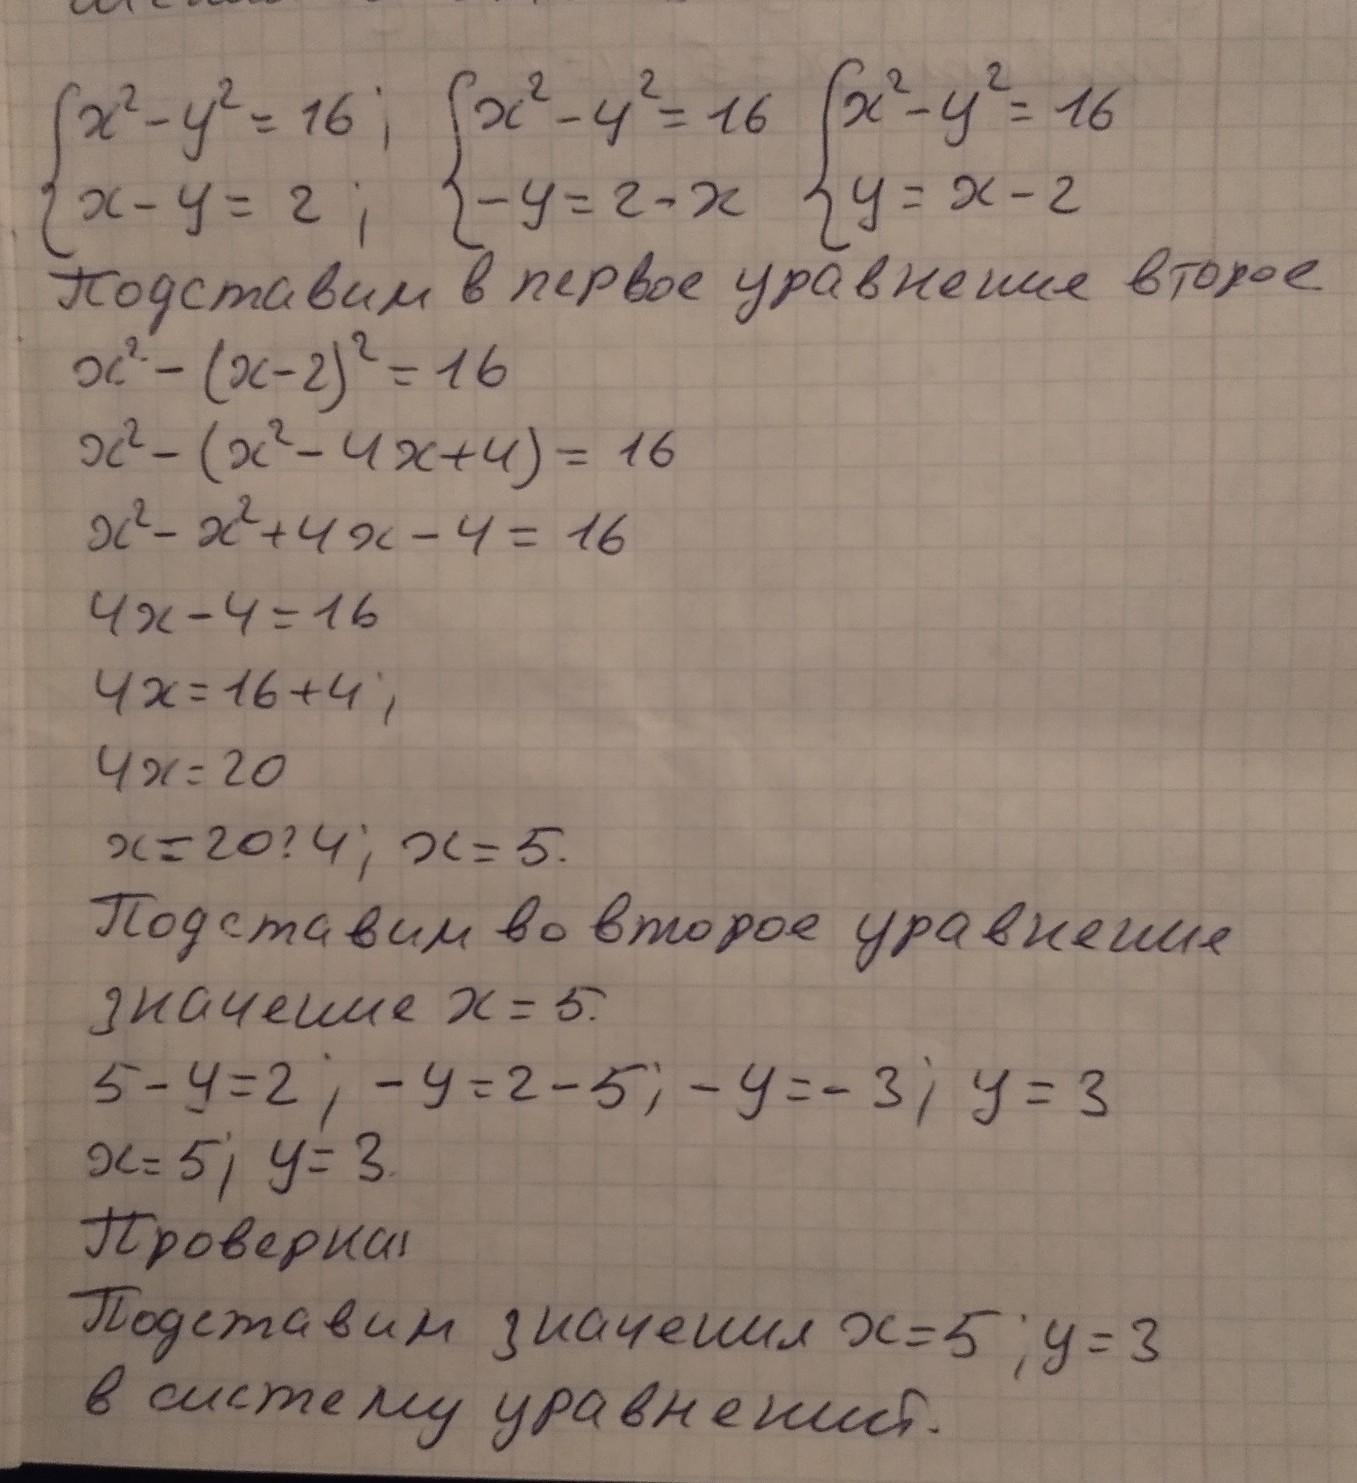 {x² - y² = 16; {x² - y² = 16 {x² - y² = 16
{x - y = 2; {-y = 2 - x {y = x - 2
Подставим в первое уравнение второе
x² - (x - 2)² = 16
x² - (x² - 4x + 4) = 16
x² - x² + 4x - 4 = 16
4x - 4 = 16
4x = 16 + 4;
4x = 20
x = 20 : 4; x = 5.
Подставим во второе уравнение
значение x = 5.
5 - y = 2; -y = 2 - 5; -y = -3; y = 3
x = 5; y = 3.
Проверка:
Подставим значения x = 5; y = 3
в систему уравнений.